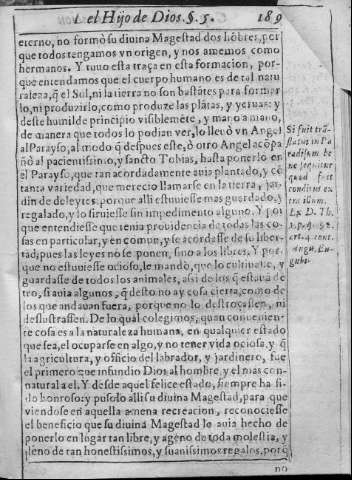 el Hijo de Dios. §. 5. 189
eterno, no formó su diuina Magestad dos hõbres, por
que todos tengamos vn origen, y nos amemos como
hermanos. Y tuuo esta traça en esta formacion, por-
que entendamos que el cuerpo humano es de tal natu
raleza, q̃ el Sol, ni la tierra no son bastãtes para formar
lo, ni produzirlo, como produze las plãtas, y yeruas: y
deste humilde principio visiblemẽte, y mano a mano,
de manera que todos lo podian ver, lo lleuò vn Angel
al Parayso, al modo q̃ despues este, ò otro Angel acõpa
ñò al pacientissimo, y sancto Tobias, hasta ponerlo en
el Parayso, que tan acordadamente auia plantado, y cõ
tanta variedad, que merecio llamarse en la tierra, jar-
din de deleytes, porque alli estuuiesse mas guardado, y
regalado, y lo siruiesse sin impedimento alguno. Y por
que entendiesse que tenia prouidencia de todas las co-
sas en particular, y en comun, y se acordasse de su liber
tad, pues las leyes no se ponen, sino a los libres. Y por-
que no estuuiesse ocioso, le mandò, que lo cultiuasse, y
guardasse de todos los animales, assi de los q̃ estauã de
tro, si auia algunos, q̃ desto no ay cosa cierta, como de
los que andauan fuera, porque no lo destroçassen, ni
deslustrassen. De lo qual colegimos, quan conuenien-
te cosa es a la naturaleza humana, en qualquier estado
que sea, el ocuparse en algo, y no tener vida ociosa, y q̃
la agricultura, y officio del labrador, y jardinero, fue
el primero que infundio Dios al hombre, y el mas con-
natural a el. Y desde aquel felice estado, siempre ha si-
do honroso: y pusolo alli su diuina Magestad, para que
viendose en aquella amena recreacion, reconociesse
el beneficio que su diuina Magestad le auia hecho de
ponerlo en lugar tan libre, y ageno de toda molestia, y
lleno de tan honestissimos, y suauissimos regalos, porq̃
no
Si fuit trã-
slatus in Pa
radisum
quod fuit
conditus ex
tra illum.
D. Th.